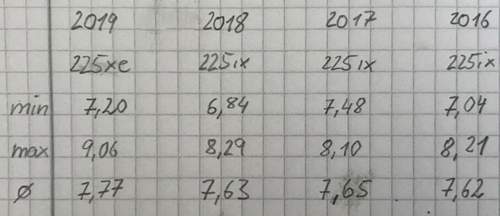 2019 2018 2017 2016
225xe 225ix 225ix 225ix
min 7,20 6,84 7,48 7,04
max 9,06 8,29 8,10 8,21
ø 7,77 7,63 7,65 7,62